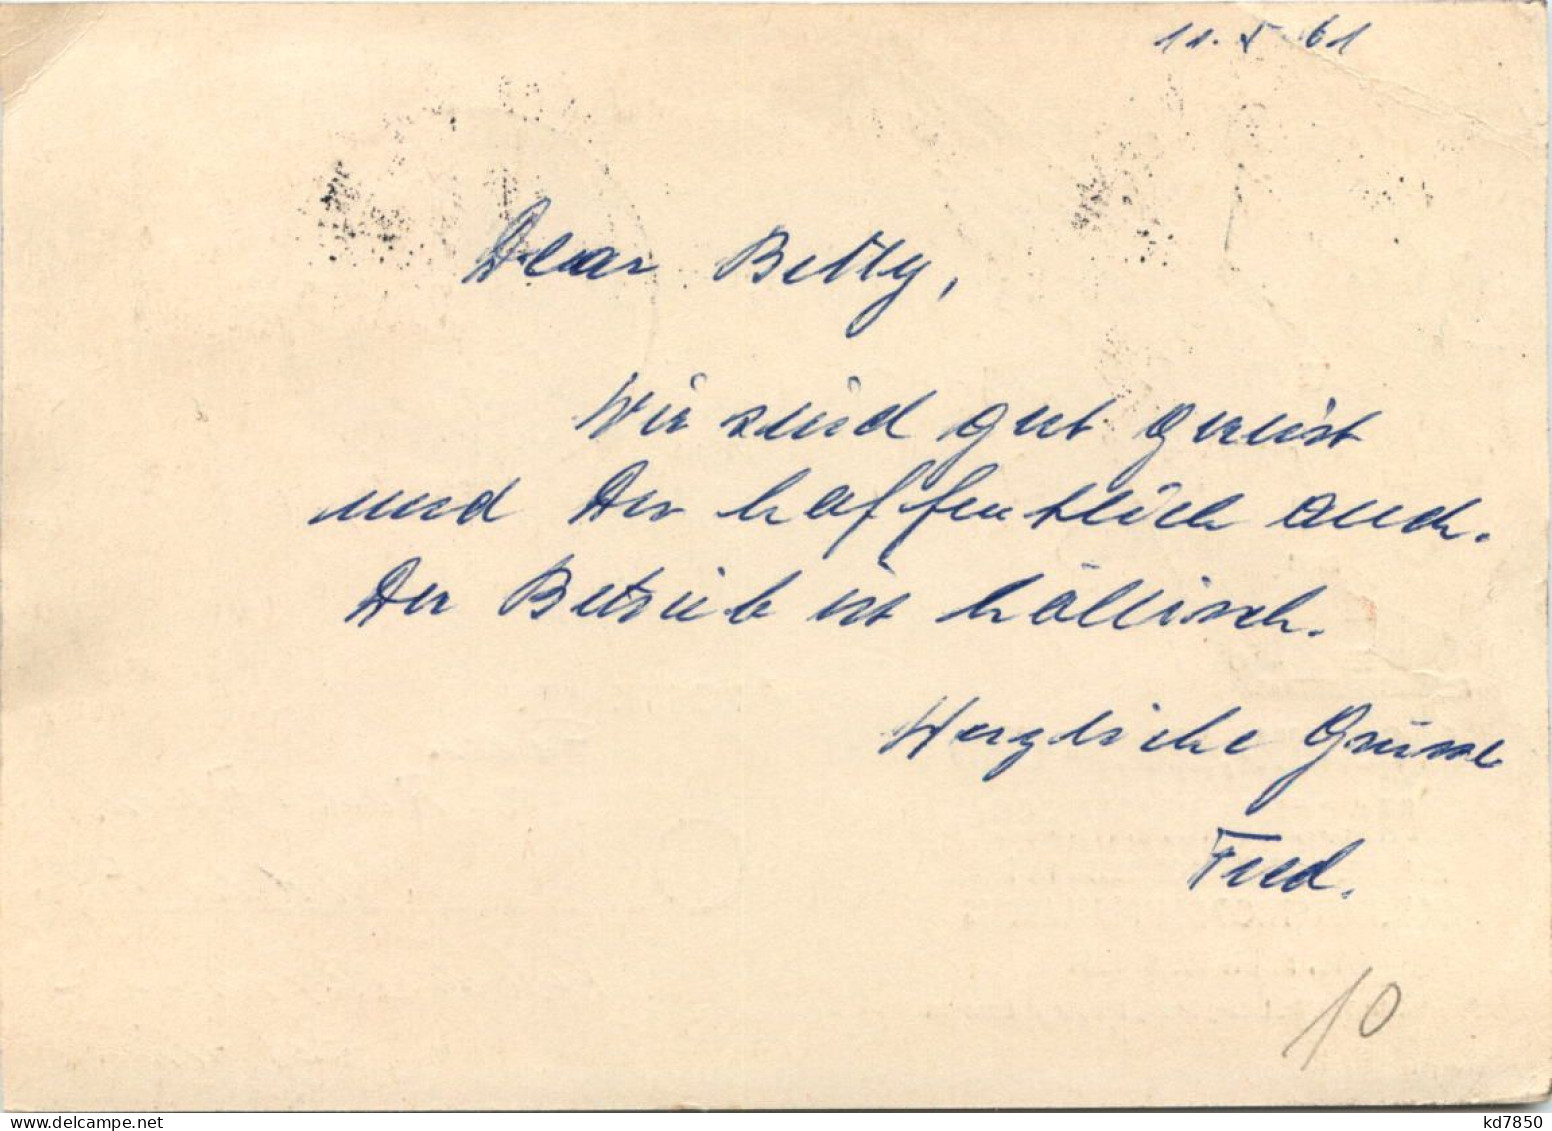 11. V 61
Dear Betty,
Wir sind gut gereist
und Du hoffentlich auch.
Der Betrieb ist höllisch.
Herzliche Grüsse
Fred.
10
kd7850